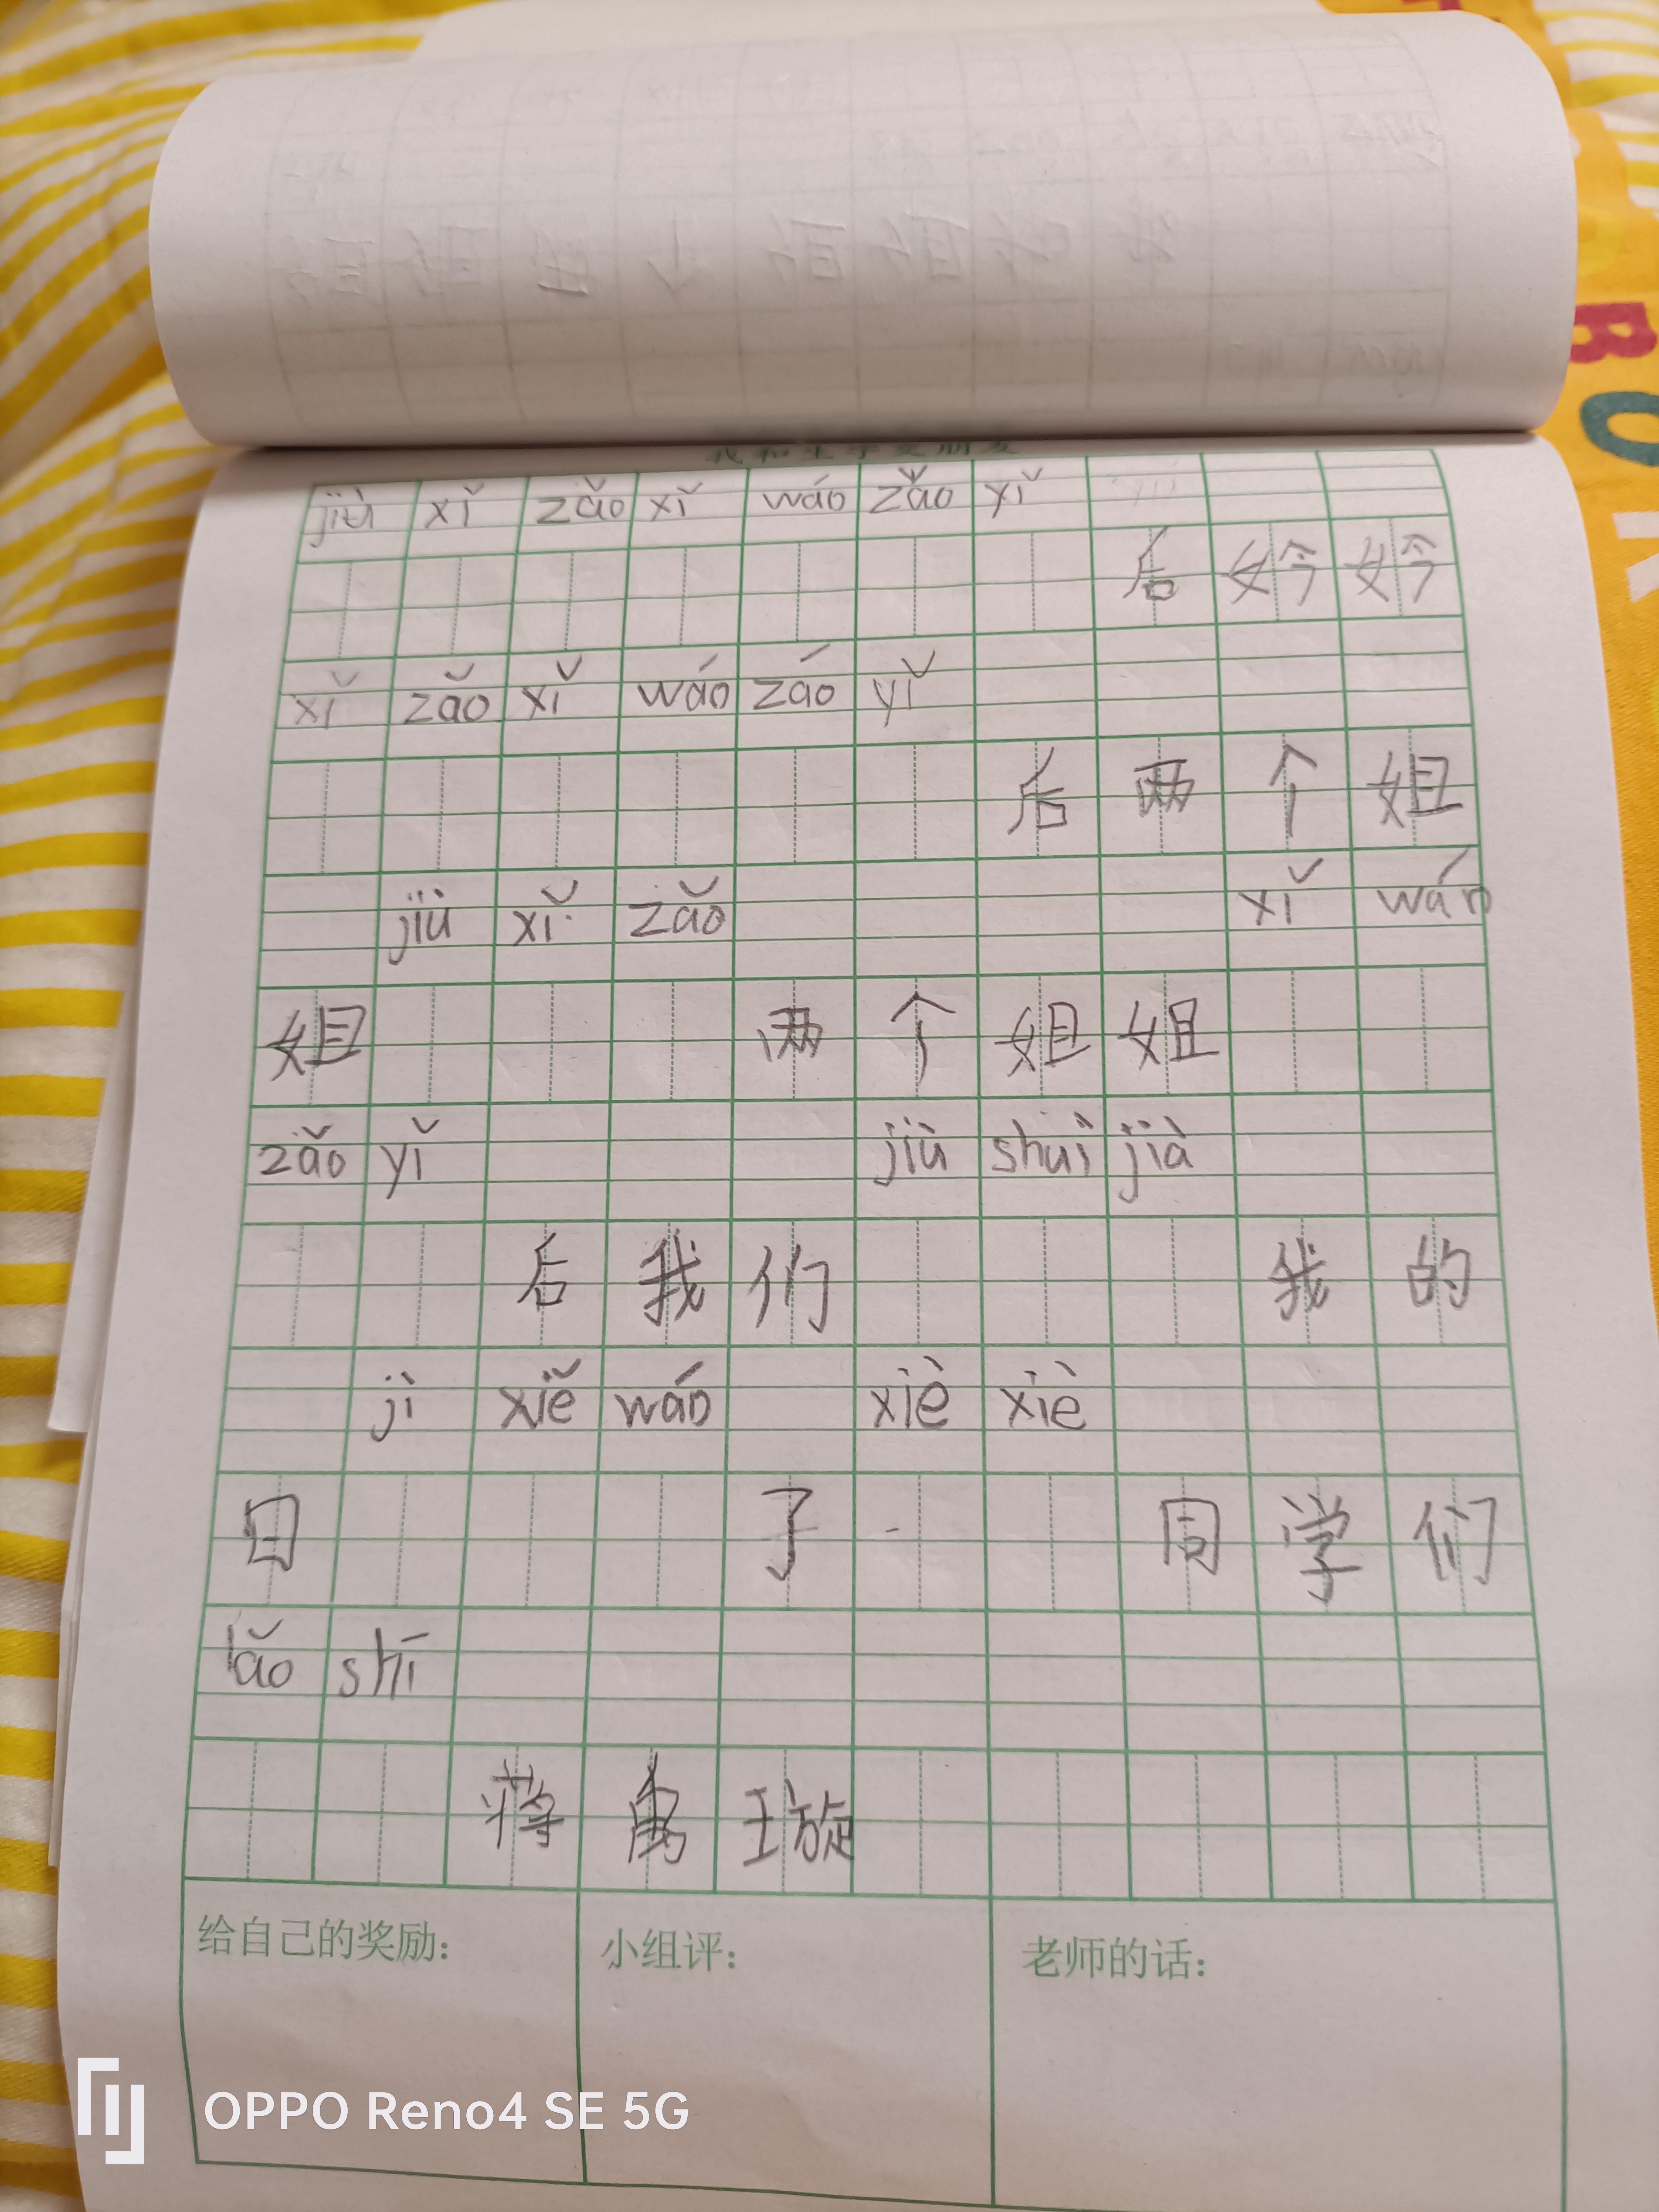 jiù xǐ zǎo xǐ wáo zǎo yǐ
后 妗 妗
xǐ zǎo xǐ wáo záo yǐ
后 两 个 姐
jiù xǐ zǎo xǐ wán
姐 两 个 姐 姐
zǎo yǐ jiù shuì jià
后 我 们 我 的
jì xiě wáo xiè xiè
日 了 同 学 们
lǎo shī
蒋 禹 璇
给自己的奖励:
小组评:
老师的话:
OPPO Reno4 SE 5G